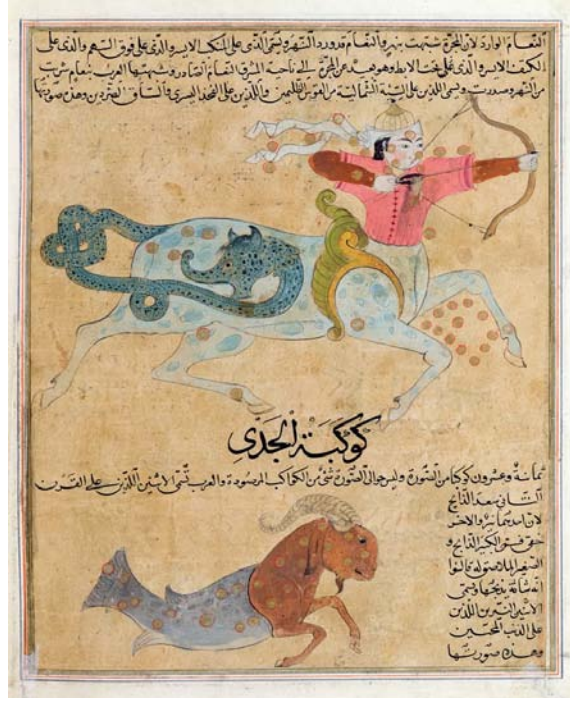 النعام الوارد لان المجرة شبهت بنهر والنعام قد ورد النهر وتسمى الذى على المنكب الايسر والذى على فوق السهم والذى على
الكتف الايسر والذى على تحت الابط وهو بعيد عن المجرة الى ناحية المشرق النعام الصادر وشبهتها العرب بنعام شربت
من النهر وصدرت وتسمى اللذين على السية الشمالية من القوس الظليمين واللذين على الفخذ اليسرى والساق الصردين وهذه صورتها
كوكبة الجدى
ثمانية وعشرون كوكبا من الصورة وليس حوالى الصورة شئ من الكواكب المرصودة والعرب تسمى الاثنين اللذين على القرن
الثانى سعد الذابح
لان والاخر
خفى الذابح و
الصغير الملاصق له قالوا
انه شاته يذبحها وتسمى
الاثنين النيرين اللذين
على الذنب المحبين
وهذه صورتها